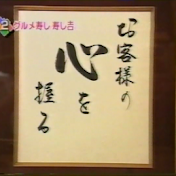 2 グルメ寿し 寿し吉
お客様の
心を
握る